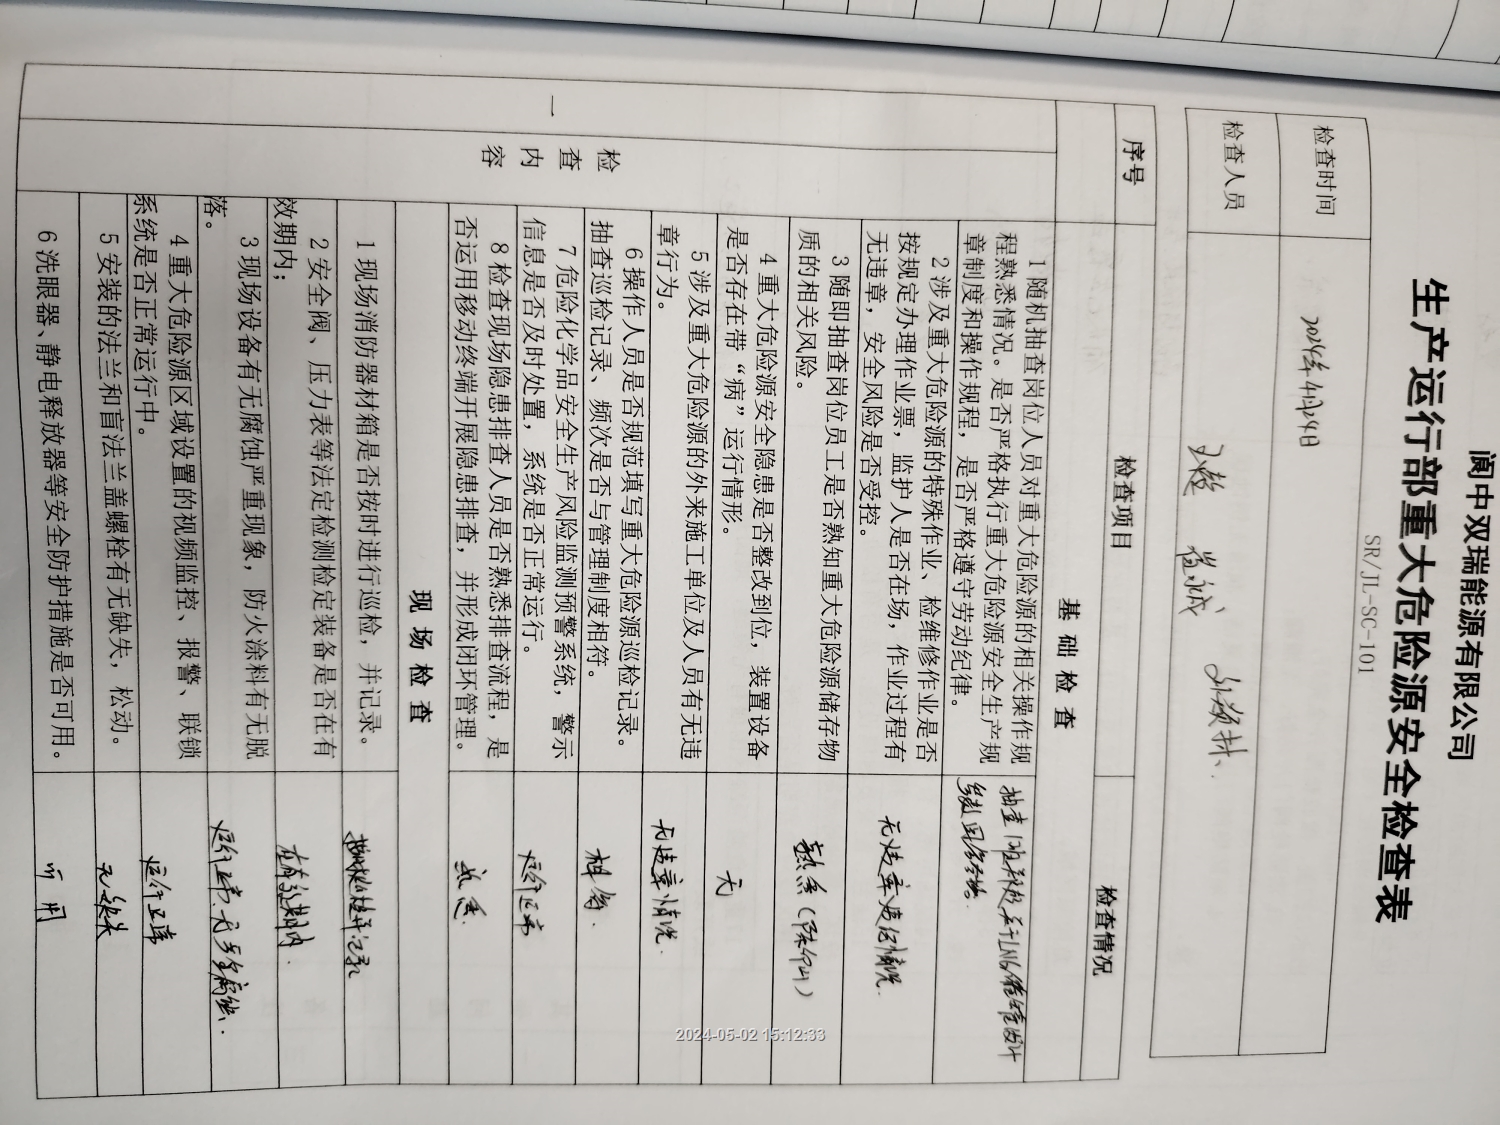 阆中双瑞能源有限公司
生产运行部重大危险源安全检查表
SR/JL-SC-101
检查时间
2024年4月24日
检查人员
序号
检查项目
检查情况
基 础 检 查
一
检 查 内 容
1 随机抽查岗位人员对重大危险源的相关操作规
程熟悉情况。是否严格执行重大危险源安全生产规
章制度和操作规程，是否严格遵守劳动纪律。
2 涉及重大危险源的特殊作业、检维修作业是否
按规定办理作业票，监护人是否在场，作业过程有
无违章，安全风险是否受控。
无违章违纪情况.
3 随即抽查岗位员工是否熟知重大危险源储存物
质的相关风险。
熟悉
4 重大危险源安全隐患是否整改到位，装置设备
是否存在带“病”运行情形。
无
5 涉及重大危险源的外来施工单位及人员有无违
章行为。
无违章情况.
6 操作人员是否规范填写重大危险源巡检记录。
抽查巡检记录、频次是否与管理制度相符。
相符.
7 危险化学品安全生产风险监测预警系统，警示
信息是否及时处置，系统是否正常运行。
运行正常
8 检查现场隐患排查人员是否熟悉排查流程，是
否运用移动终端开展隐患排查，并形成闭环管理。
熟悉.
现 场 检 查
1 现场消防器材箱是否按时进行巡检，并记录。
2 安全阀、压力表等法定检测检定装备是否在有
效期内；
在有效期内.
3 现场设备有无腐蚀严重现象，防火涂料有无脱
落。
4 重大危险源区域设置的视频监控、报警、联锁
系统是否正常运行中。
运行正常
5 安装的法兰和盲法兰盖螺栓有无缺失，松动。
无缺失
6 洗眼器、静电释放器等安全防护措施是否可用。
可用
2024-05-02 15:12:33